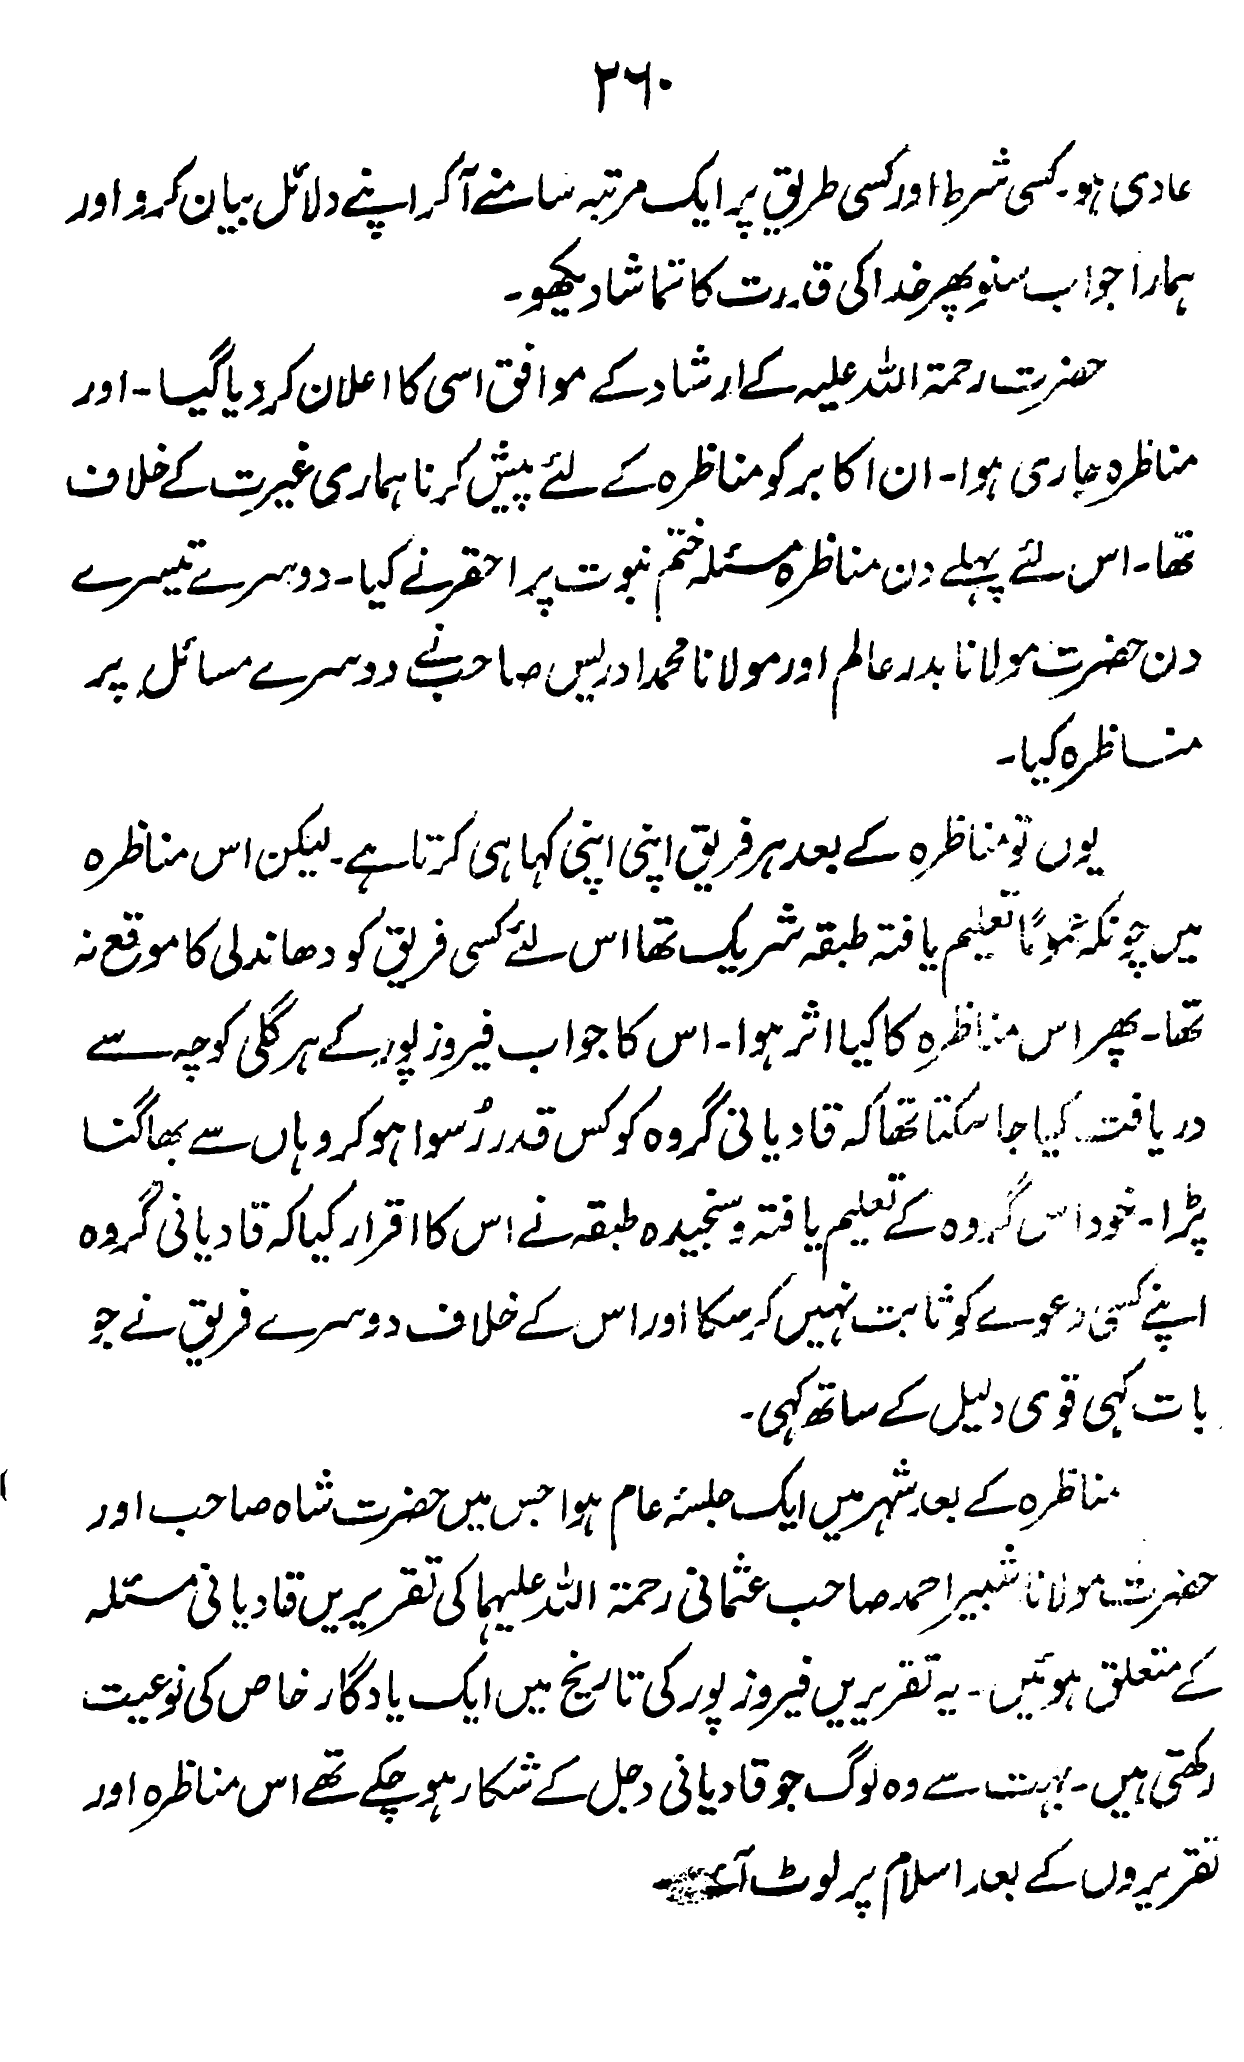 ۲۶۰
عادی ہو۔ کسی شرط اور کسی طریق پر ایک مرتبہ سامنے آکر اپنے دلائل بیان کرو اور
ہمارا جواب سنو پھر خدا کی قدرت کا تماشا دیکھو۔
حضرت رحمۃ اللہ علیہ کے ارشاد کے موافق اسی کا اعلان کر دیا گیا۔ اور
مناظرہ جاری ہوا۔ ان اکابر کو مناظرہ کے لئے پیش کرنا ہماری غیرت کے خلاف
تھا۔ اس لئے پہلے دن مناظرہ مسئلہ ختم نبوت پر احقر نے کیا۔ دوسرے تیسرے
دن حضرت مولانا بدر عالم اور مولانا محمد ادریس صاحب نے دوسرے مسائل پر
مناظرہ کیا۔
یوں تو مناظرہ کے بعد ہر فریق اپنی اپنی کہا ہی کرتا ہے۔ لیکن اس مناظرہ
میں چونکہ عموماً تعلیم یافتہ طبقہ شریک تھا اس لئے کسی فریق کو دھاندلی کا موقع نہ
تھا۔ پھر اس مناظرہ کا کیا اثر ہوا۔ اس کا جواب فیروز پور کے ہر گلی کوچہ سے
دریافت کیا جا سکتا تھا کہ قادیانی گروہ کو کس قدر رُسوا ہو کر وہاں سے بھاگنا
پڑا۔ خود اس گروہ کے تعلیم یافتہ و سنجیدہ طبقہ نے اس کا اقرار کیا کہ قادیانی گروہ
اپنے کسی دعوے کو ثابت نہیں کر سکا اور اس کے خلاف دوسرے فریق نے جو
بات کہی قوی دلیل کے ساتھ کہی۔
مناظرہ کے بعد شہر میں ایک جلسۂ عام ہوا جس میں حضرت شاہ صاحب اور
حضرت مولانا شبیر احمد صاحب عثمانی رحمۃ اللہ علیہما کی تقریریں قادیانی مسئلہ
کے متعلق ہوئیں۔ یہ تقریریں فیروز پور کی تاریخ میں ایک یادگار خاص کی نوعیت
رکھتی ہیں۔ بہت سے وہ لوگ جو قادیانی دجل کے شکار ہو چکے تھے اس مناظرہ اور
تقریروں کے بعد اسلام پر لوٹ آئے